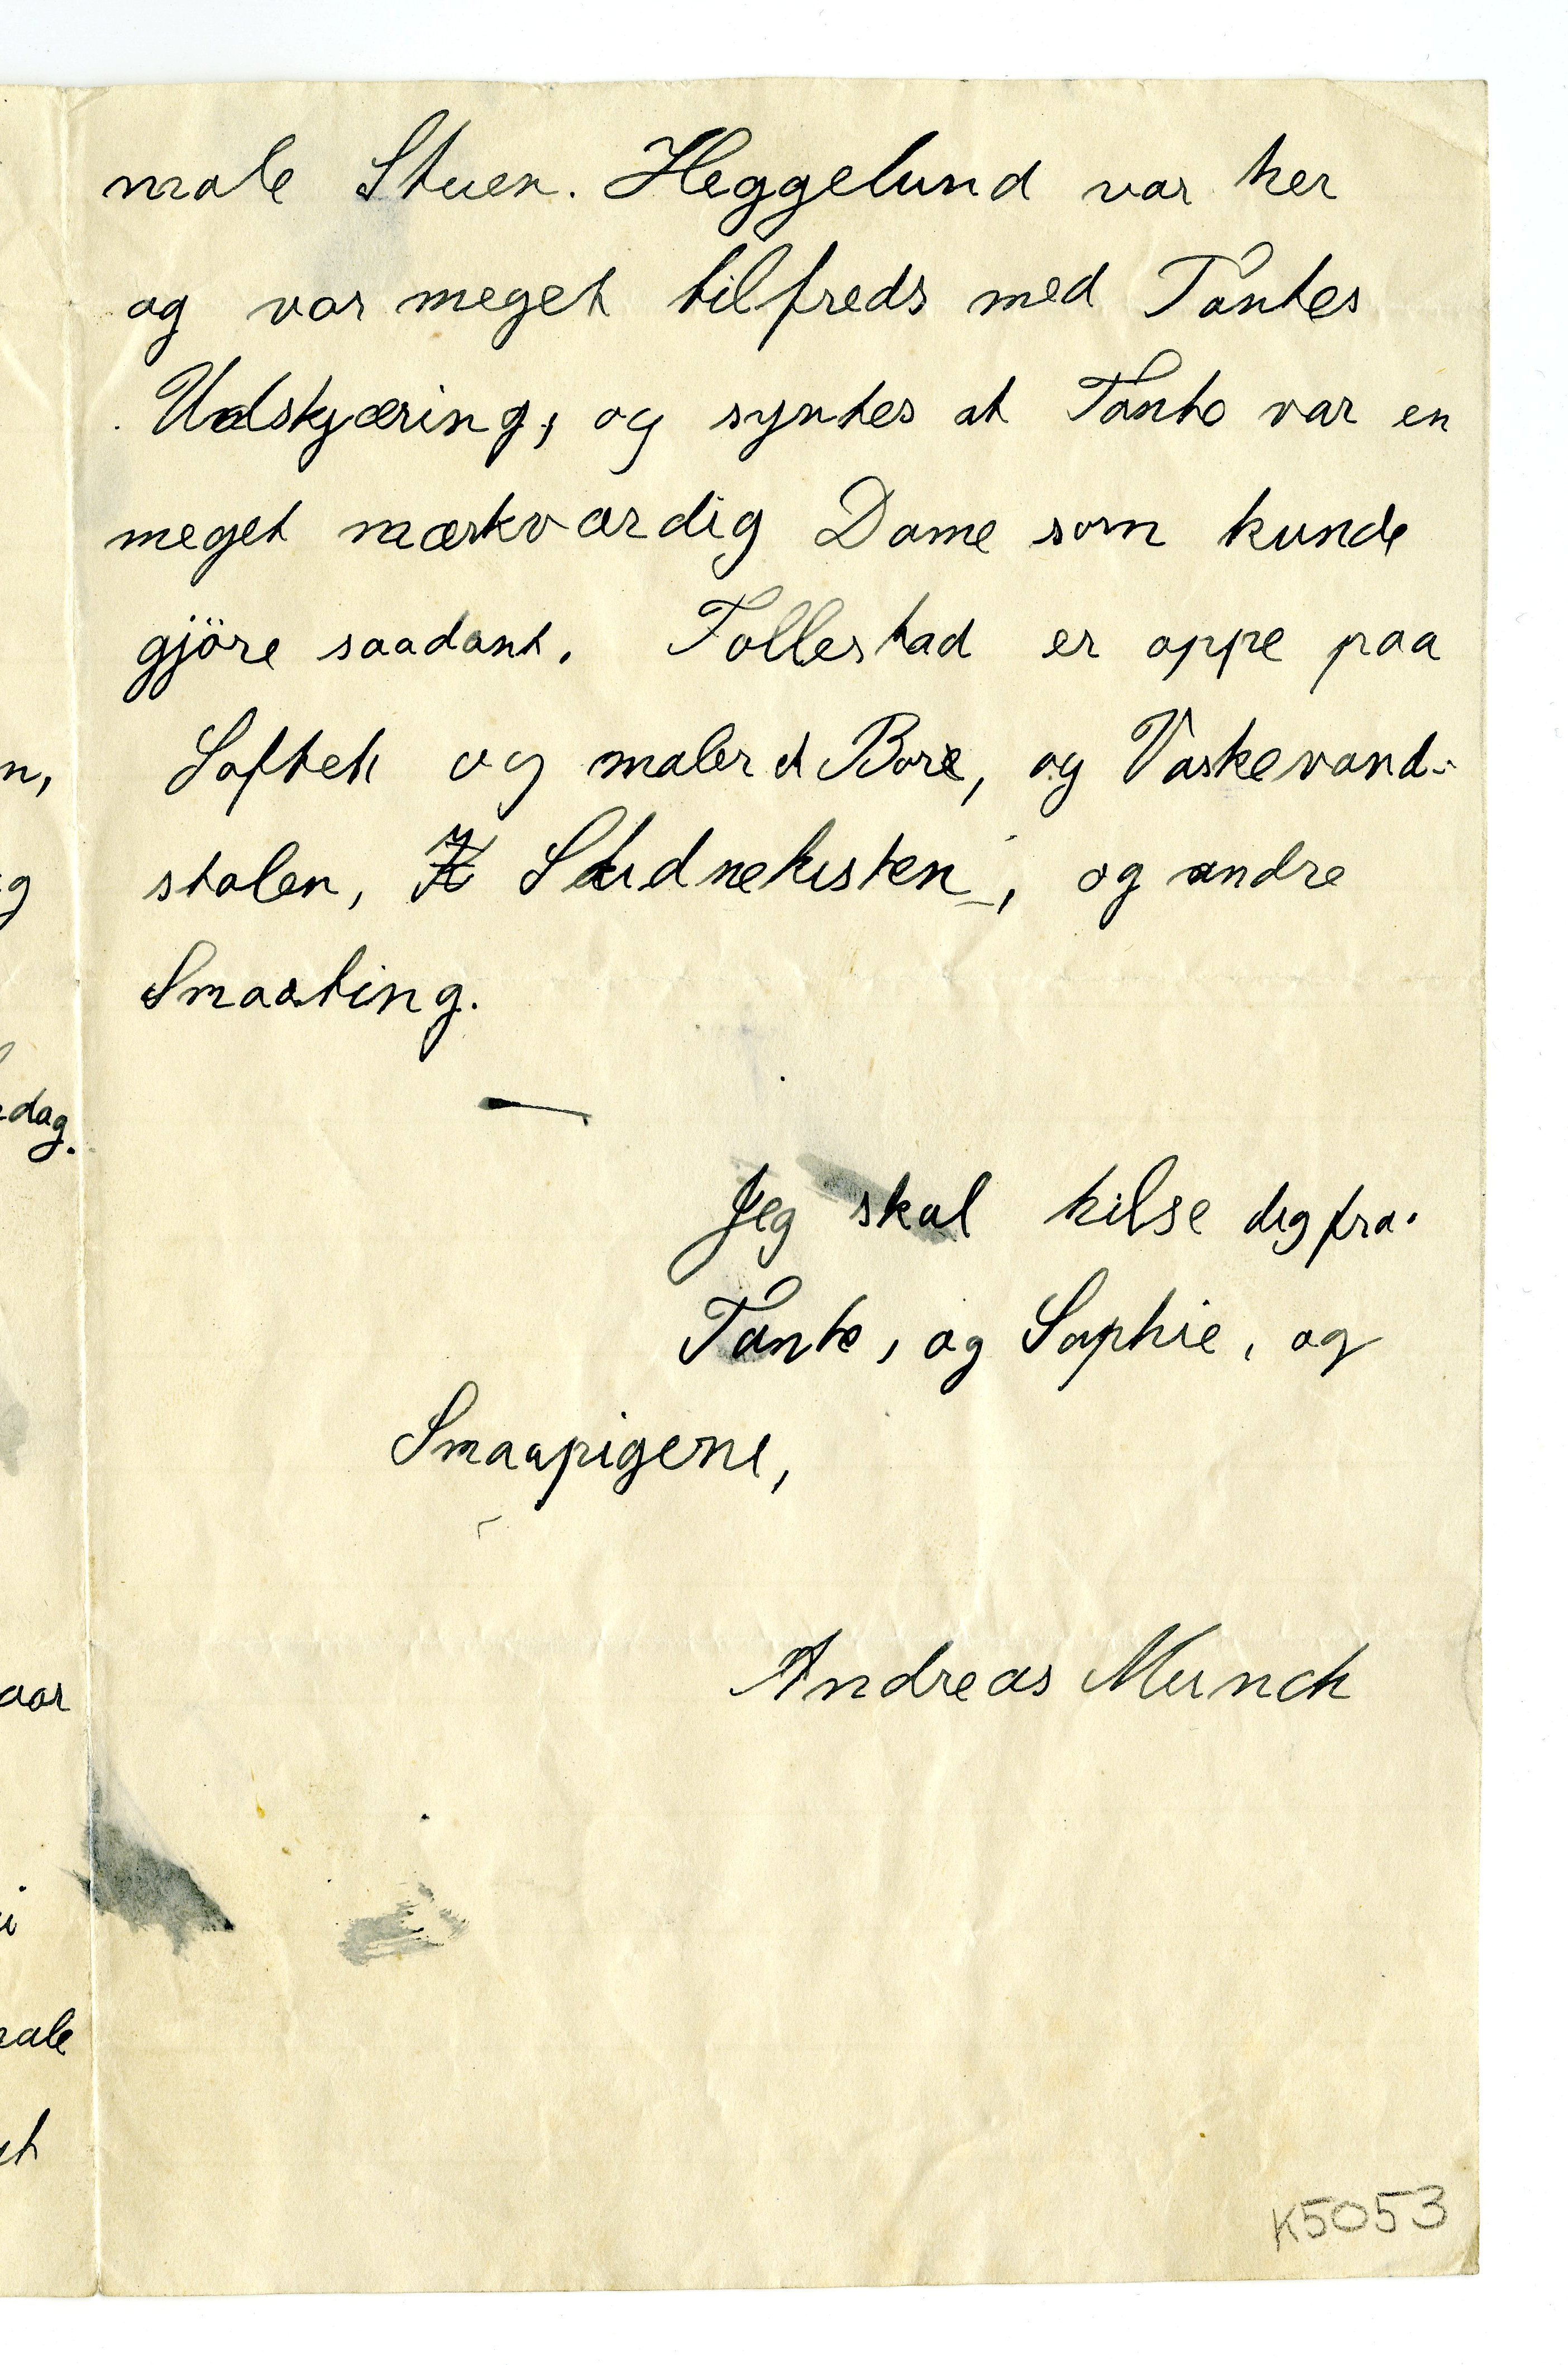 male Stuen. Heggelund var her
og var meget tilfreds med Tantes
Udskjæring, og syntes at Tante var en
meget mærkværdig Dame som kunde
gjöre saadant. Follestad er oppe paa
Loftet og maler et Bore, og Vaskevand-
stolen, Skidnekisten, og andre
Smaating.
Jeg skal hilse dig fra
Tante, og Sophie, og
Smaapigerne,
Andreas Munch
K5053
n,
g
dag.
aar
i
male
et